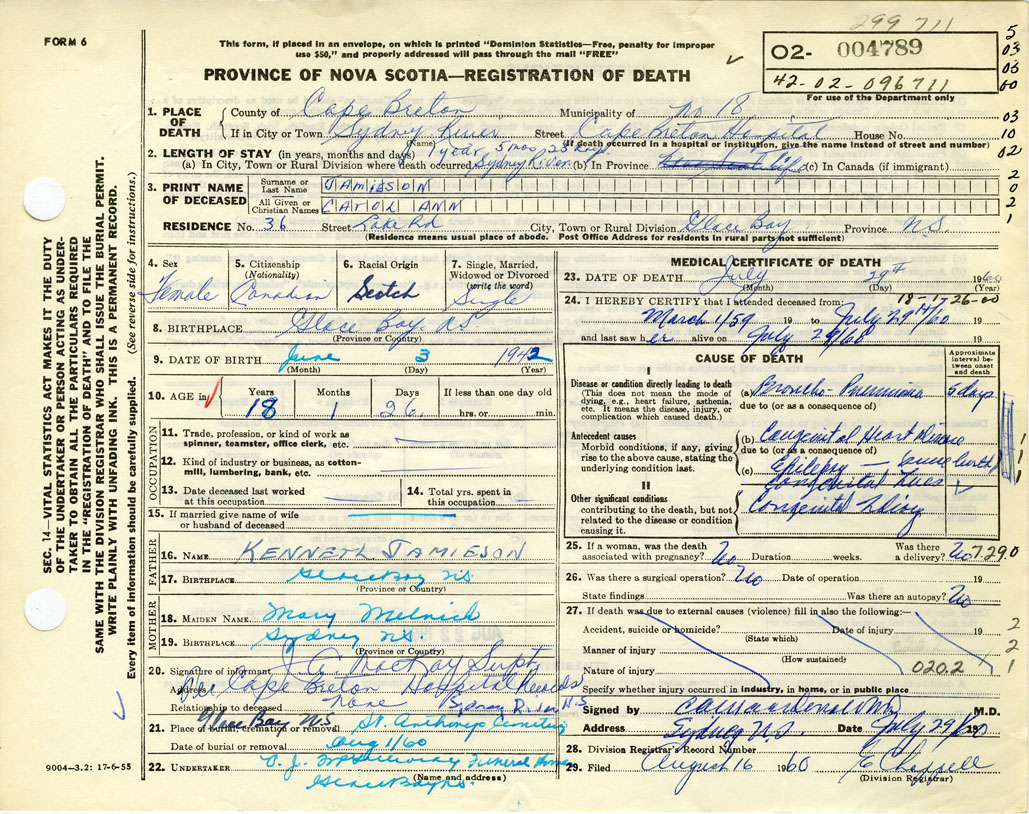 299 711
FORM 6
This form, if placed in an envelope, on which is printed "Dominion Statistics—Free, penalty for improper
use $50," and properly addressed will pass through the mail "FREE"
PROVINCE OF NOVA SCOTIA—REGISTRATION OF DEATH
02- 004789
42-02-096711
For use of the Department only
5
03
03
00
03
10
02
2
0
2
1
SEC. 14—VITAL STATISTICS ACT MAKES IT THE DUTY
OF THE UNDERTAKER OR PERSON ACTING AS UNDER-
TAKER TO OBTAIN ALL THE PARTICULARS REQUIRED
IN THE "REGISTRATION OF DEATH" AND TO FILE THE
SAME WITH THE DIVISION REGISTRAR WHO SHALL ISSUE THE BURIAL PERMIT.
WRITE PLAINLY WITH UNFADING INK. THIS IS A PERMANENT RECORD.
Every item of information should be carefully supplied. (See reverse side for instructions.)
1. PLACE OF DEATH
County of Cape Breton Municipality of No 18
If in City or Town Sydney River Street Cape Breton Hospital House No.
(Name) (If death occurred in a hospital or institution, give the name instead of street and number)
2. LENGTH OF STAY (in years, months and days) 1 year 5 mos 23 days
(a) In City, Town or Rural Division where death occurred Sydney River (b) In Province life (c) In Canada (if immigrant)
3. PRINT NAME OF DECEASED
Surname or Last Name JAMIESON
All Given or Christian Names CAROL ANN
RESIDENCE No. 36 Street Lake Rd City, Town or Rural Division Glace Bay Province N.S.
(Residence means usual place of abode. Post Office Address for residents in rural parts not sufficient)
4. Sex Female
5. Citizenship (Nationality) Canadian
6. Racial Origin Scotch
7. Single, Married, Widowed or Divorced (write the word) Single
8. BIRTHPLACE Glace Bay NS
(Province or Country)
9. DATE OF BIRTH June 3 1942
(Month) (Day) (Year)
10. AGE in Years 18 Months 1 Days 26 If less than one day old hrs. or min.
OCCUPATION
11. Trade, profession, or kind of work as spinner, teamster, office clerk, etc.
12. Kind of industry or business, as cotton-mill, lumbering, bank, etc.
13. Date deceased last worked at this occupation
14. Total yrs. spent in this occupation
15. If married give name of wife or husband of deceased
FATHER
16. NAME KENNETH JAMIESON
17. BIRTHPLACE Glace Bay NS.
(Province or Country)
MOTHER
18. MAIDEN NAME Mary Melnick
19. BIRTHPLACE Sydney NS
(Province or Country)
20. Signature of informant MacKay Supt
Address Cape Breton Hospital Records
Relationship to deceased None Sydney River N.S
Glace Bay N.S
21. Place of burial, cremation or removal St. Anthonys Cemetery
Date of burial or removal Aug 1/60
22. UNDERTAKER Funeral Home
Glace Bay NS.
(Name and address)
9004—3.2: 17-6-55
MEDICAL CERTIFICATE OF DEATH
23. DATE OF DEATH July 29th 1960
(Month) (Day) (Year)
24. I HEREBY CERTIFY that I attended deceased from: 18-1-26-00
March 1/59 19 to July 29th/60 19
and last saw her alive on July 29/60 19
CAUSE OF DEATH
Approximate interval between onset and death
I
Disease or condition directly leading to death
(This does not mean the mode of dying, e.g., heart failure, asthenia, etc. It means the disease, injury, or complication which caused death.)
(a) Broncho-Pneumonia 5 days
due to (or as a consequence of)
Antecedent causes
Morbid conditions, if any, giving rise to the above cause, stating the underlying condition last.
(b) Congenital Heart Disease
due to (or as a consequence of)
(c) Epilepsy — since birth
Congenital Lues
II
Other significant conditions
contributing to the death, but not related to the disease or condition causing it.
Congenital Idiocy
1
1
1
25. If a woman, was the death associated with pregnancy? No Duration weeks. Was there a delivery? No 729.0
26. Was there a surgical operation? No Date of operation 19
State findings Was there an autopsy? No
27. If death was due to external causes (violence) fill in also the following:—
Accident, suicide or homicide? Date of injury 19
(State which)
Manner of injury
(How sustained)
Nature of injury 020.2
2
2
1
Specify whether injury occurred in industry, in home, or in public place
Signed by M.D.
Address Sydney N.S. Date July 29/60 19
28. Division Registrar's Record Number
29. Filed August 16 1960 E Chappell
(Division Registrar)